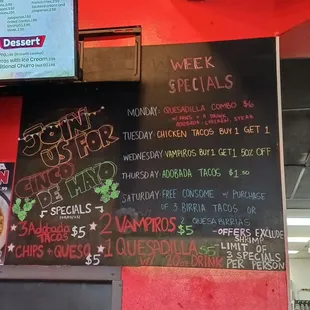 Dessert
os with Ice Cream
tional Churro
WEEK
SPECIALS
MONDAY: QUESADILLA COMBO $6
ADOBADA, CHICKEN, STEAK
TUESDAY: CHICKEN TACOS BUY 1 GET 1
WEDNESDAY: VAMPIROS BUY 1 GET 1 50% OFF
THURSDAY: ADOBADA TACOS $1.50
SATURDAY: FREE CONSOME W/ PURCHASE
OF 3 BIRRIA TACOS OR
2 QUESABIRRIAS
-OFFERS EXCLUDE
SHRIMP
LIMIT OF
3 SPECIALS
PER PERSON
JOIN
US FOR
CINCO
DE MAYO
- SPECIALS -
3 Adobada
TACOS $5
CHIPS + QUESO $5
2 VAMPIROS
$5
1 QUESADILLA
W/ DRINK